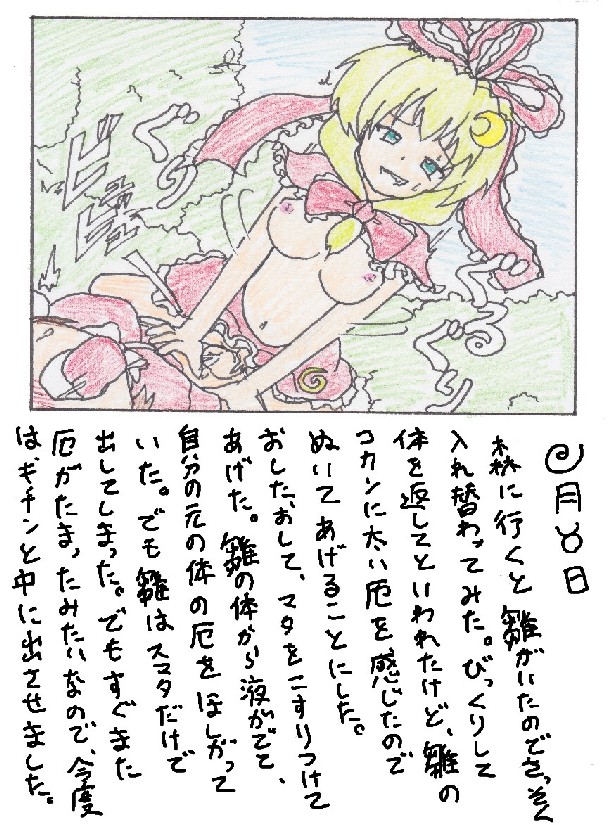 月日
森に行くと雛がいたのでさっそく
入れ替わってみた。びっくりして
体を返してといわれたけど、雛の
コカンに太い厄を感じたので
ぬいてあげることにした。
おしたおして、マタをこすりつけて
あげた。雛の体から液がでて、
自分の元の体の厄をほしがって
いた。でも雛はスマタだけで
出してしまった。でもすぐまた
厄がたまったみたいなので、今度
はギチンと中に出させました。
ビュビュ